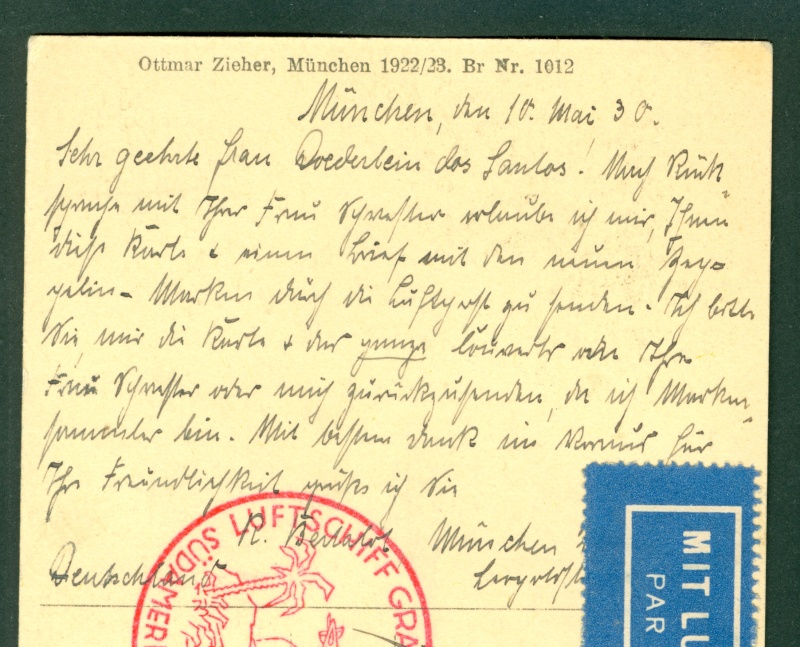 Ottmar Zieher, München 1922/23. Br Nr. 1012
München, den 10. Mai 30.
Sehr geehrte Frau Doederlein dos Santos! Nach Rück"
sprache mit Ihrer Frau Schwester erlaube ich mir, Ihnen
diese Karte & einen Brief mit den neuen Zep=
pelin-Marken durch die Luftpost zu senden. Ich bitte
Sie, mir die Karte & das ganze Couvert oder Ihre
Frau Schwester oder mich zurückzusenden, da ich Marken"
sammler bin. Mit bestem Dank im Voraus für
Ihre Freundlichkeit grüße ich Sie
R. München
Deutschland
LUFTSCHIFF GRA
SÜDAMERI
MIT LU
PAR